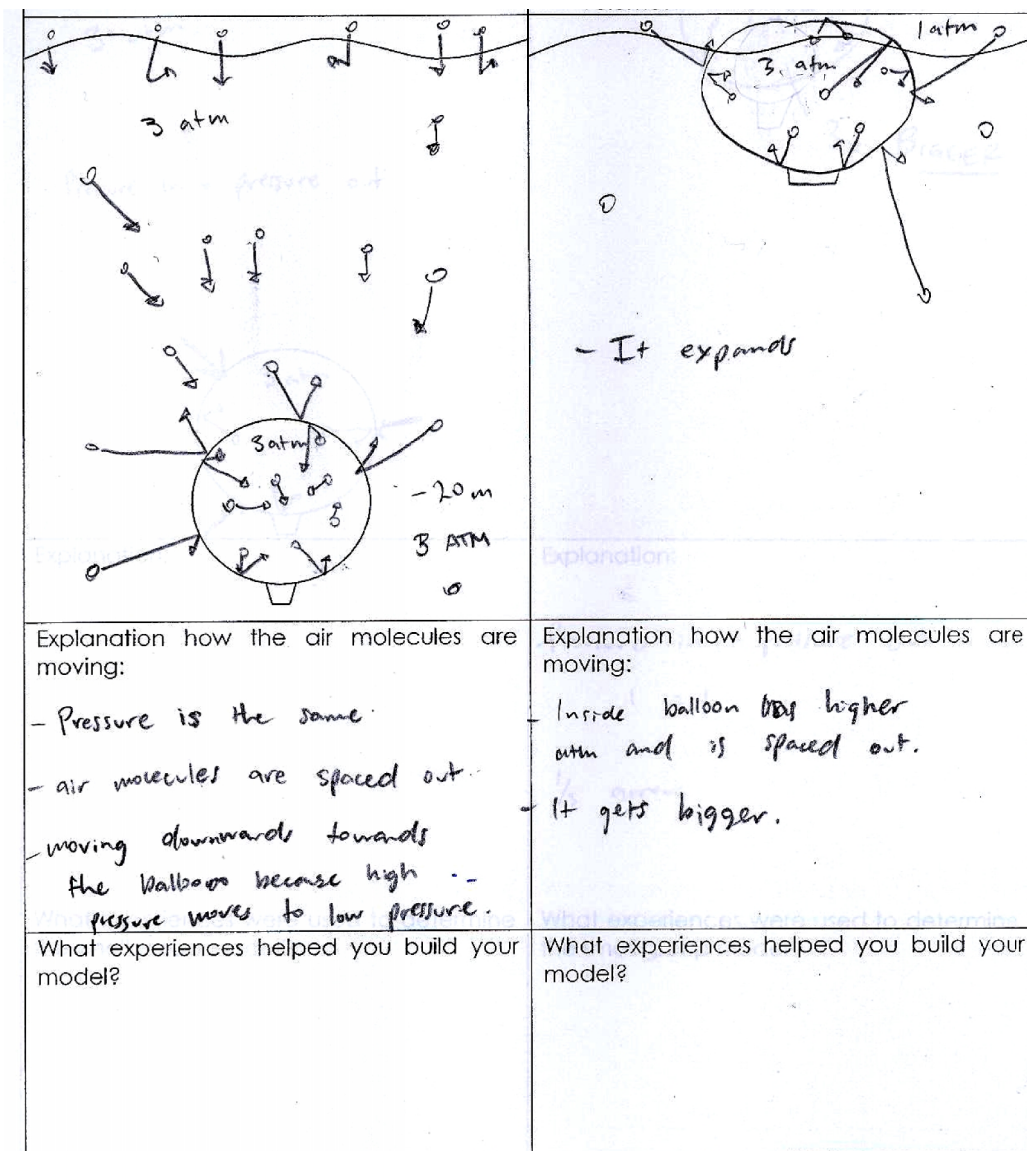 3 atm
3 atm
-20 m
3 ATM
Explanation how the air molecules are
moving:
- Pressure is the same.
- air molecules are spaced out.
- moving downwards towards
the balloon because high
pressure moves to low pressure.
What experiences helped you build your
model?
1 atm
3 atm
- It expands
Explanation:
Explanation how the air molecules are
moving:
- Inside balloon has higher
atm and is spaced out.
- It gets bigger.
What experiences helped you build your
model?